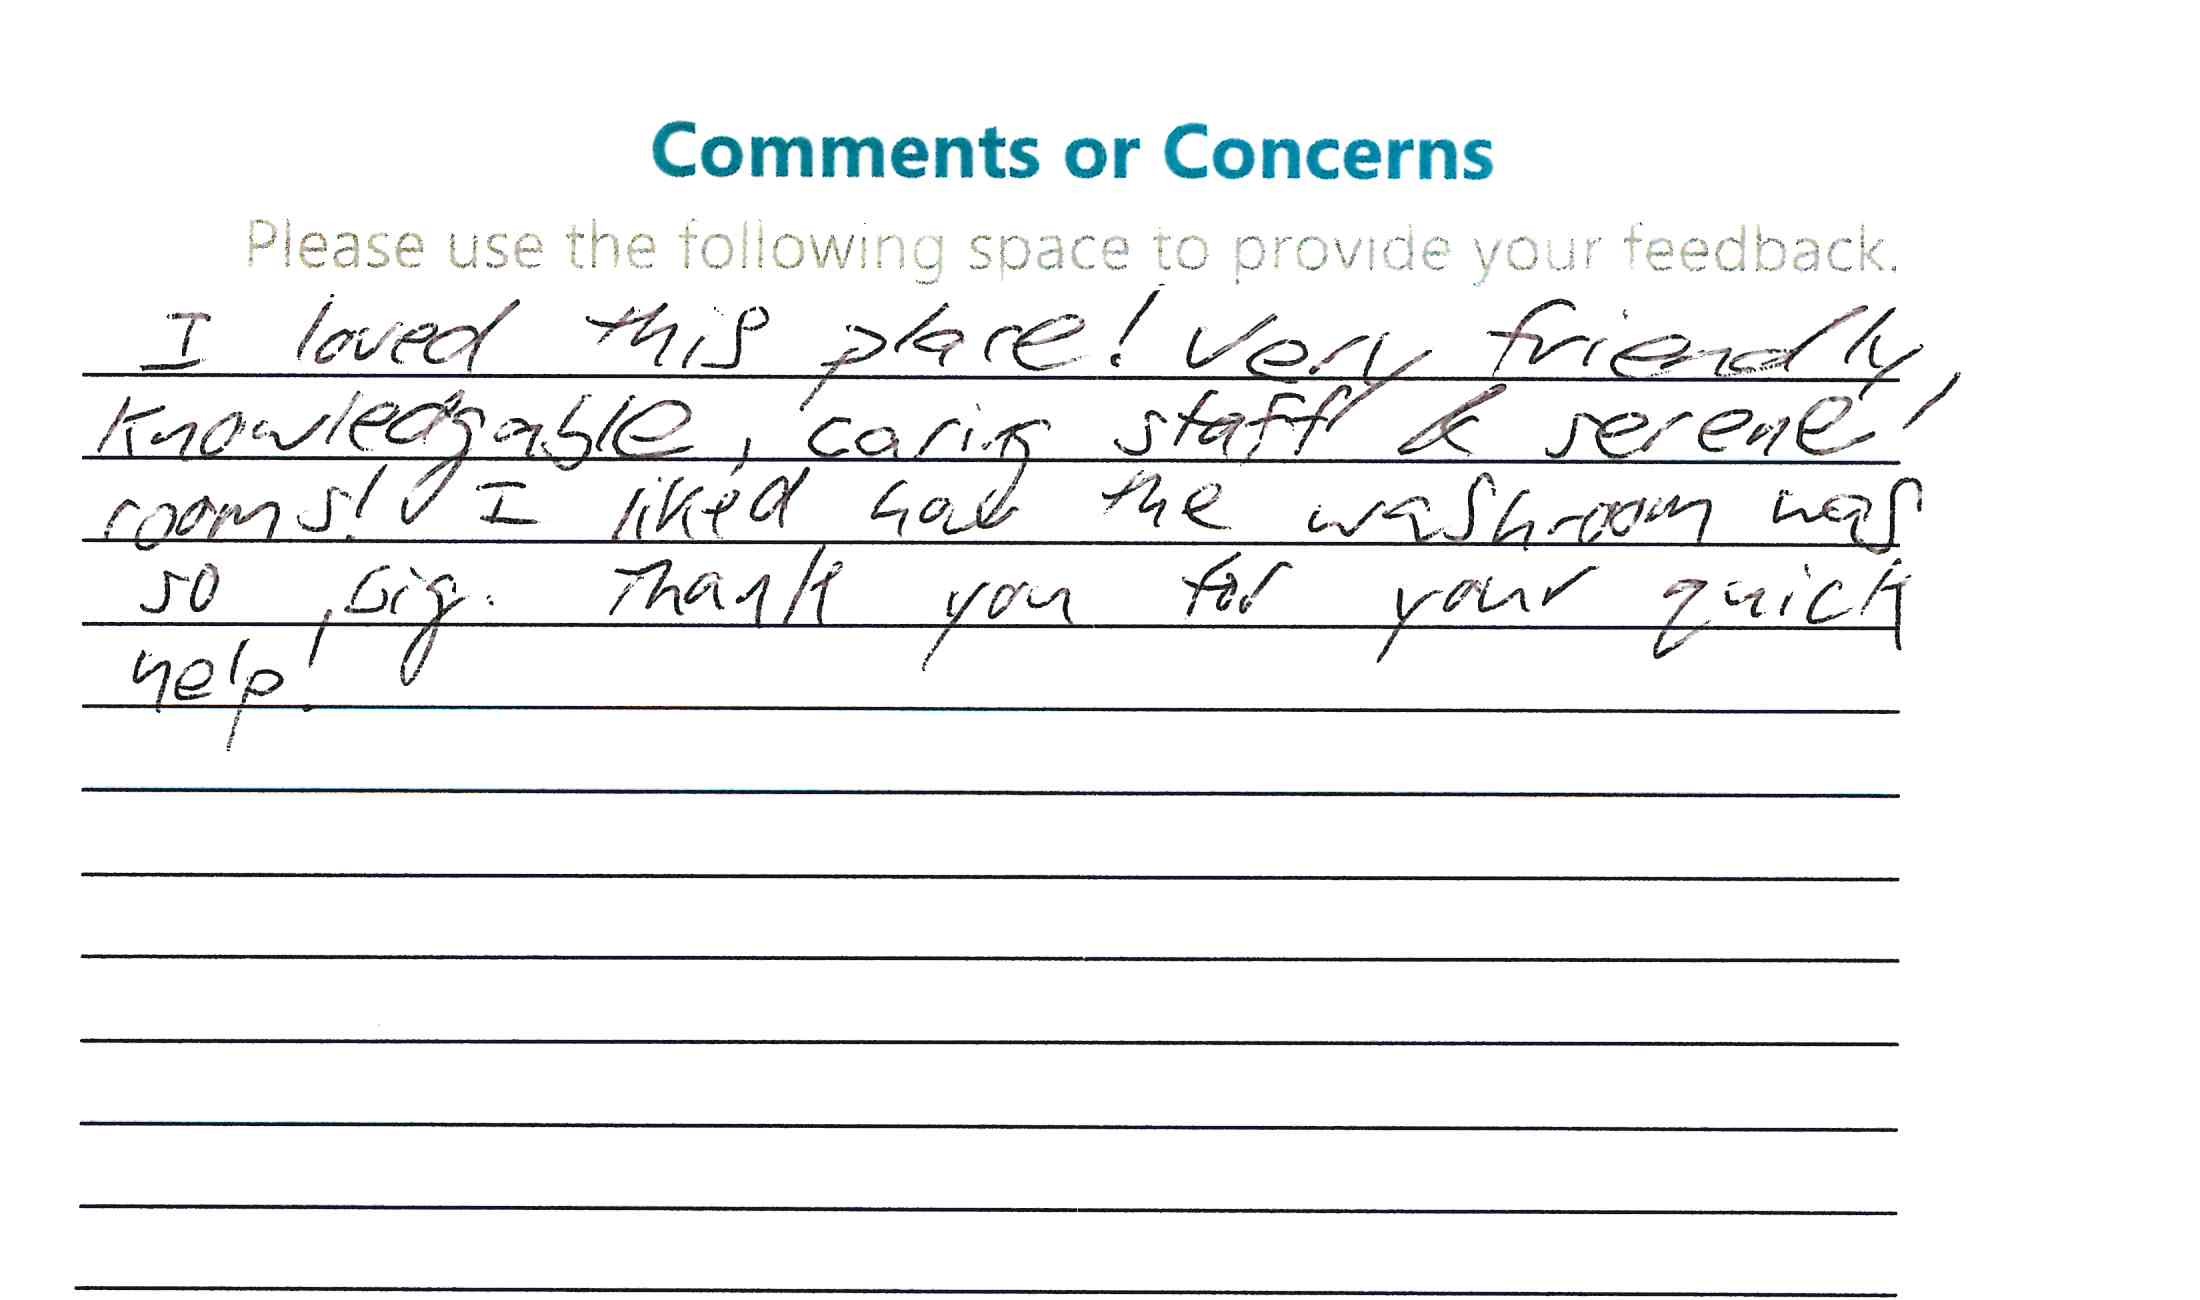 Comments or Concerns
Please use the following space to provide your feedback.
I loved this place! Very friendly,
knowledgable, caring staff & serene
rooms! I liked how the washroom was
so big. Thank you for your quick
help!